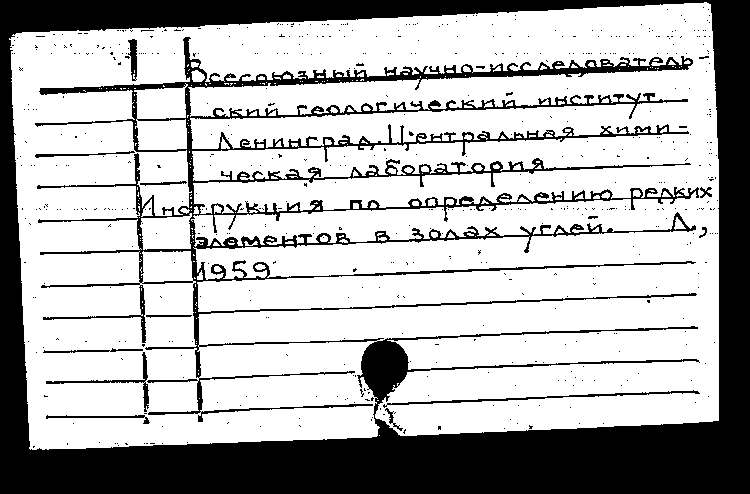 Всесоюзный научно-исследователь-
ский геологический институт.
Ленинград. Центральная хими-
ческая лаборатория
Инструкция по определению редких
элементов в золах углей. Л.,
1959